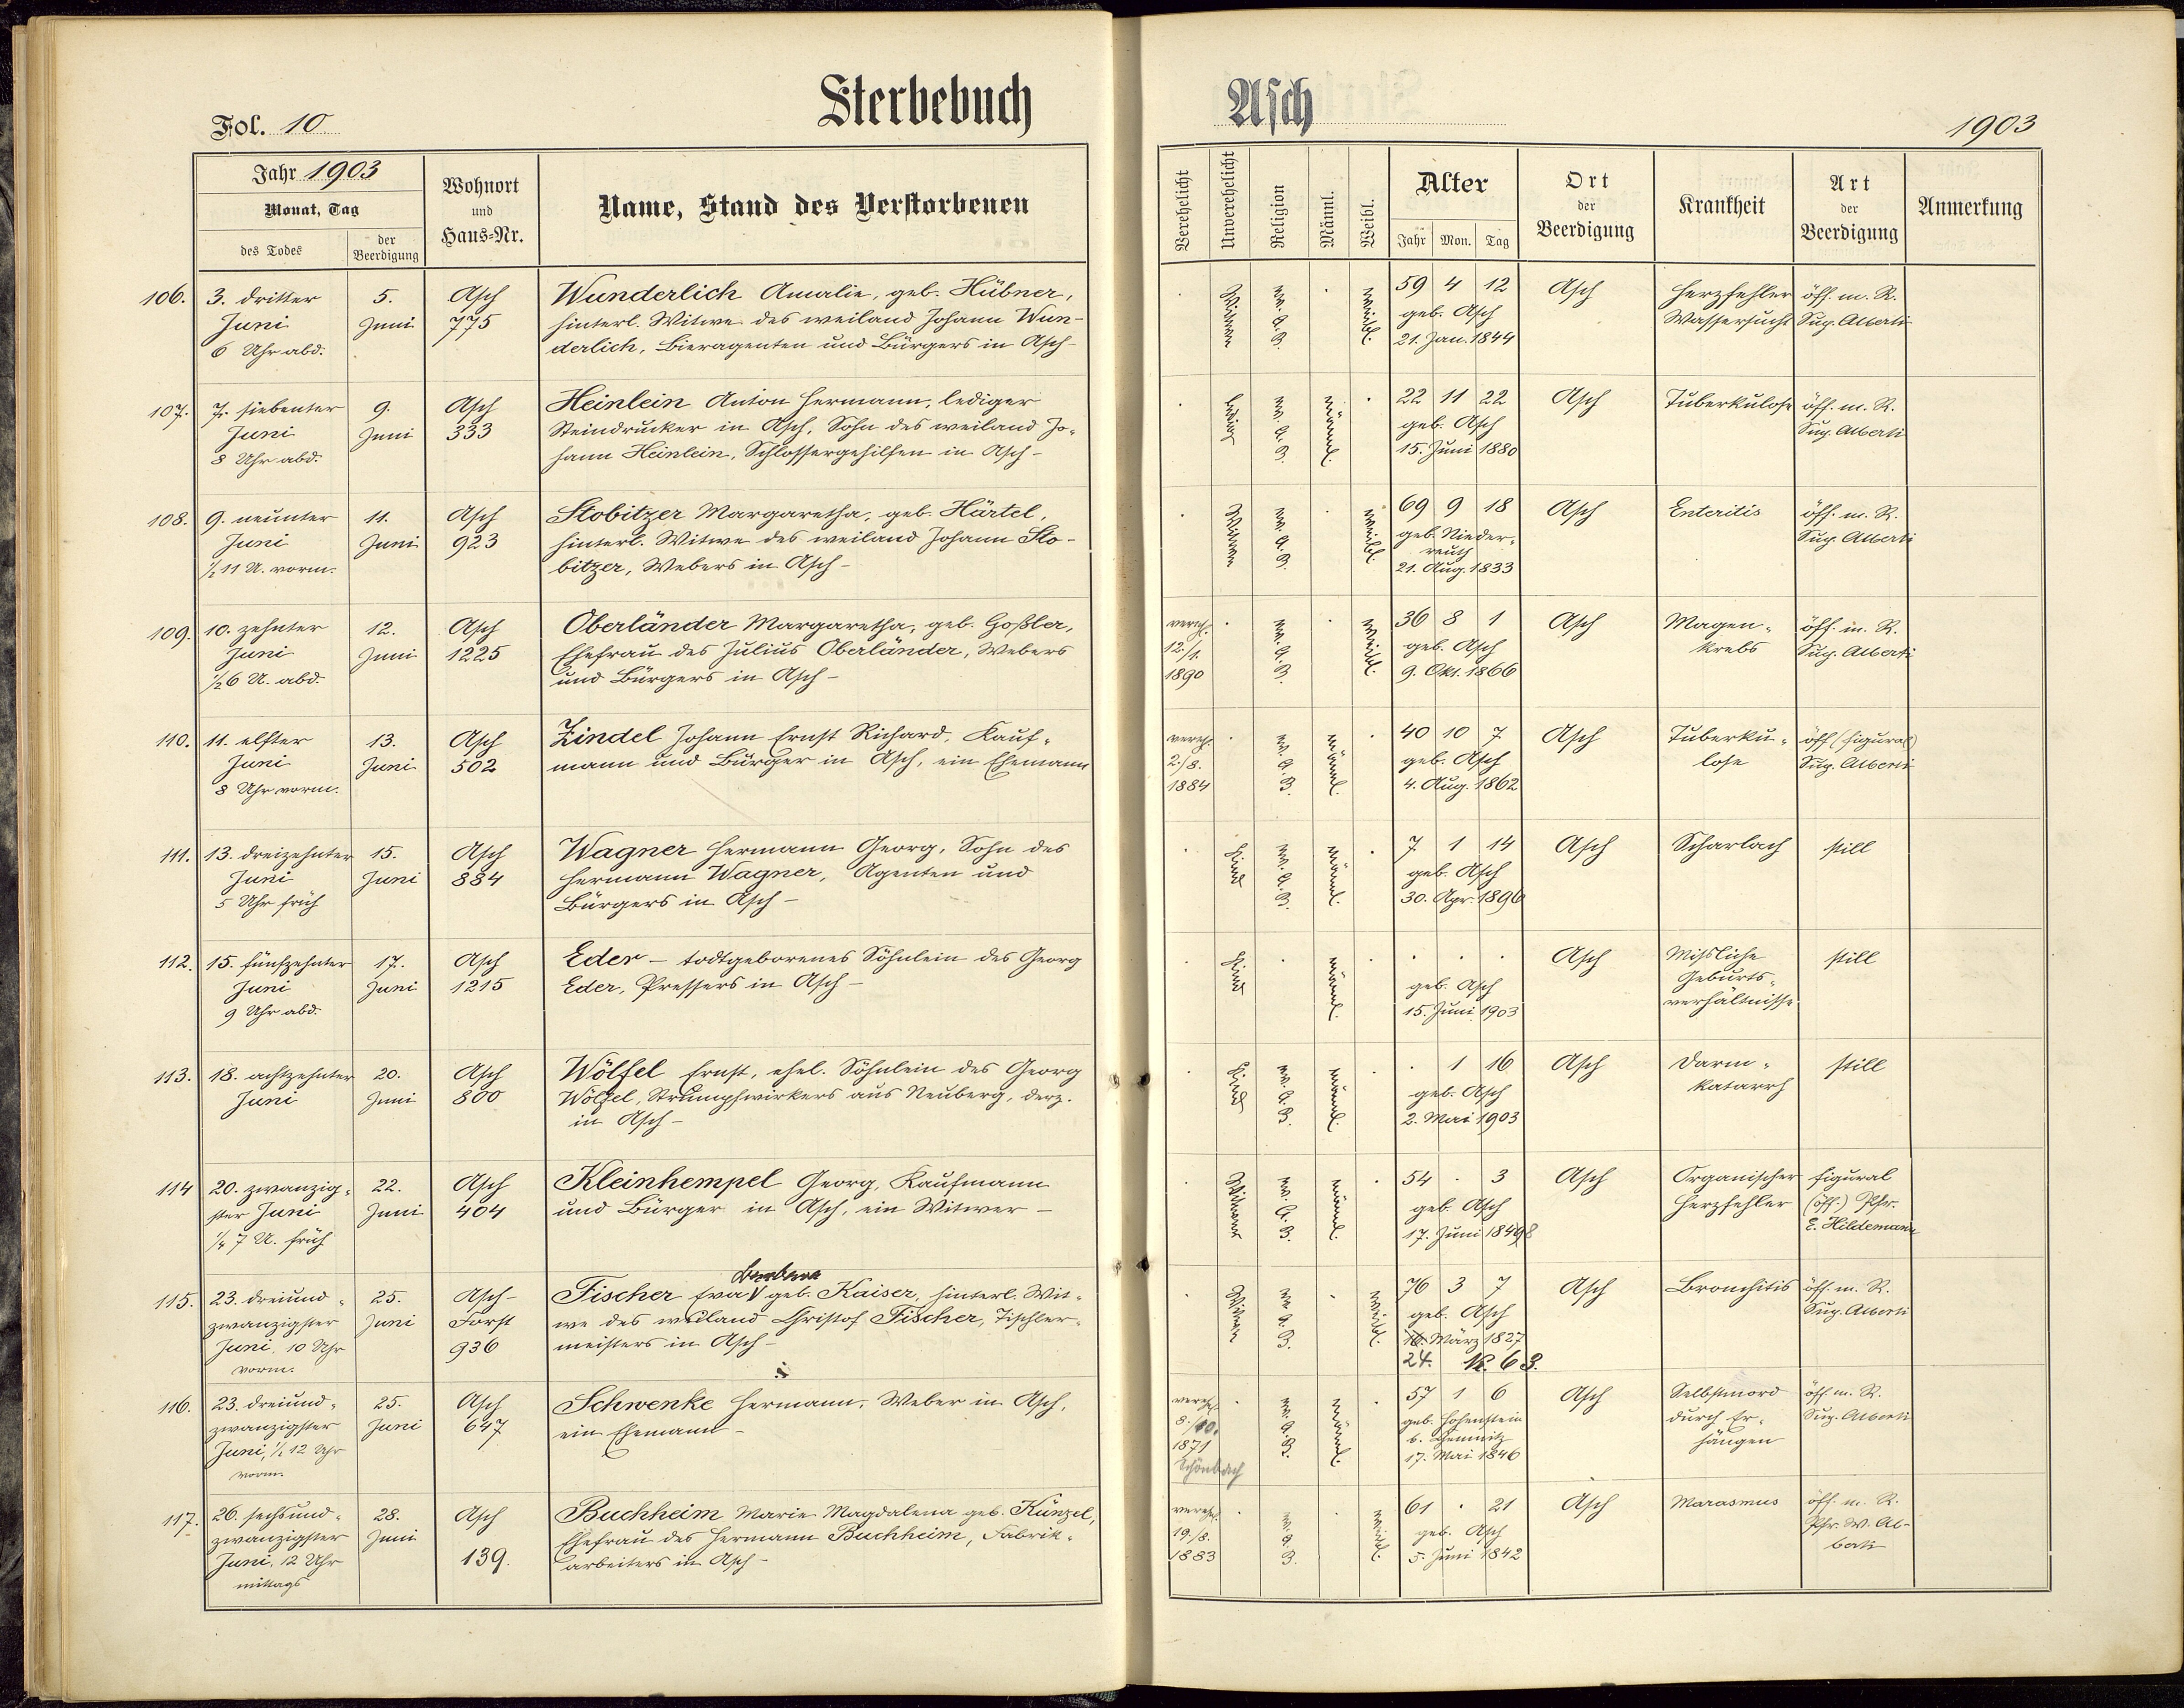 Sterbebuch
Asch
Fol. 10
1903
Jahr 1903
Monat, Tag
des Todes
der Beerdigung
Wohnort und Haus=Nr.
Name, Stand des Verstorbenen
Verehelicht
Unverehelicht
Religion
Männl.
Weibl.
Alter
Jahr Mon. Tag
Ort der Beerdigung
Krankheit
Art der Beerdigung
Anmerkung
106. 3. dritter 5. Asch Wunderlich Amalie, geb. Hübner, . Witwe ev. A. B. . weibl. 59 4 12 Asch Herzfehler öff. m. R.
Juni Juni 775 hinterl. Witwe des weiland Johann Wun- geb. Asch Wassersucht Sup. Alberti
6 Uhr abd. derlich, Bieragenten und Bürgers in Asch- 21. Jan. 1844
107. 7. siebenter 9. Asch Heinlein Anton Hermann, lediger . ledig ev. A. B. männl. . 22 11 22 Asch Tuberkulose öff. m. R.
Juni Juni 333 Steindrucker in Asch, Sohn des weiland Jo- geb. Asch Sup. Alberti
8 Uhr abd. hann Heinlein, Schlossergehilfen in Asch- 15. Juni 1880
108. 9. neunter 11. Asch Stobitzer Margaretha, geb. Härtel, . Witwe ev. A. B. . weibl. 69 9 18 Asch Enteritis öff. m. R.
Juni Juni 923 hinterl. Witwe des weiland Johann Sto- geb. Nieder- Sup. Alberti
½ 11 U. vorm. bitzer, Webers in Asch- reuth
21. Aug. 1833
109. 10. zehnter 12. Asch Oberländer Margaretha, geb. Goßler, vereh. . ev. A. B. . weibl. 36 8 1 Asch Magen- öff. m. R.
Juni Juni 1225 Ehefrau des Julius Oberländer, Webers 12./1. geb. Asch krebs Sup. Alberti
½ 6 U. abd. und Bürgers in Asch- 1890 9. Okt. 1866
110. 11. elfter 13. Asch Zindel Johann Ernst Richard, Kauf- vereh. . ev. A. B. männl. . 40 10 7 Asch Tuberku- öff. (figural)
Juni Juni 502 mann und Bürger in Asch, ein Ehemann 2./8. geb. Asch lose Sup. Alberti
8 Uhr vorm. 1884 4. Aug. 1862
111. 13. dreizehnter 15. Asch Wagner Hermann Georg, Sohn des . Kind ev. A. B. männl. . 7 1 14 Asch Scharlach still
Juni Juni 884 Hermann Wagner, Agenten und geb. Asch
5 Uhr früh Bürgers in Asch- 30. Apr. 1896
112. 15. fünfzehnter 17. Asch Eder - todtgeborenes Söhnlein des Georg . Kind . männl. . . . . Asch Mißliche still
Juni Juni 1215 Eder, Pressers in Asch- geb. Asch Geburts-
9 Uhr abd. 15. Juni 1903 verhältnisse.
113. 18. achtzehnter 20. Asch Wölfel Ernst, ehel. Söhnlein des Georg . Kind ev. A. B. männl. . . 1 16 Asch Darm- still
Juni Juni 800 Wölfel, Strumpfwirkers aus Neuberg, derz. geb. Asch katarrh
in Asch- 2. Mai 1903
114 20. zwanzig- 22. Asch Kleinhempel Georg, Kaufmann . Witwer ev. A. B. männl. . 54 . 3 Asch Organischer figural
ster Juni Juni 404 und Bürger in Asch, ein Witwer- geb. Asch Herzfehler (öff.) Pfr.
¼ 7 U. früh 17. Juni 1849 8 E. Hildemann
Barbara
115. 23. dreiund- 25. Asch- Fischer Eva V geb. Kaiser, hinterl. Wit- . Witwe ev. A. B. . weibl. 76 3 7 Asch Bronchitis öff. m. R.
zwanzigster Juni Forst we des weiland Christof Fischer, Tischler- geb. Asch Sup. Alberti
Juni, 10 Uhr 936 meisters in Asch- 16. März 1827
vorm. 24.
116. 23. dreiund- 25. Asch Schwenke Hermann, Weber in Asch, vereh. . ev. A. B. männl. . 57 1 6 Asch Selbstmord öff. m. R.
zwanzigster Juni 647 ein Ehemann- 8./10. geb. Hohenstein durch Er- Sup. Alberti
Juni, ½ 12 Uhr 1871 b. Chemnitz hängen
vorm. Schönbach 17. Mai 1846
117. 26. sechsund- 28. Asch Buchheim Marie Magdalena geb. Künzel, vereh. . ev. A. B. . weibl. 61 . 21 Asch Marasmus öff. m. R.
zwanzigster Juni Ehefrau des Hermann Buchheim, Fabrik- 19./8. geb. Asch Pfr. W. Al-
Juni, 12 Uhr 139. arbeiters in Asch- 1883 5. Juni 1842 berti
mittags